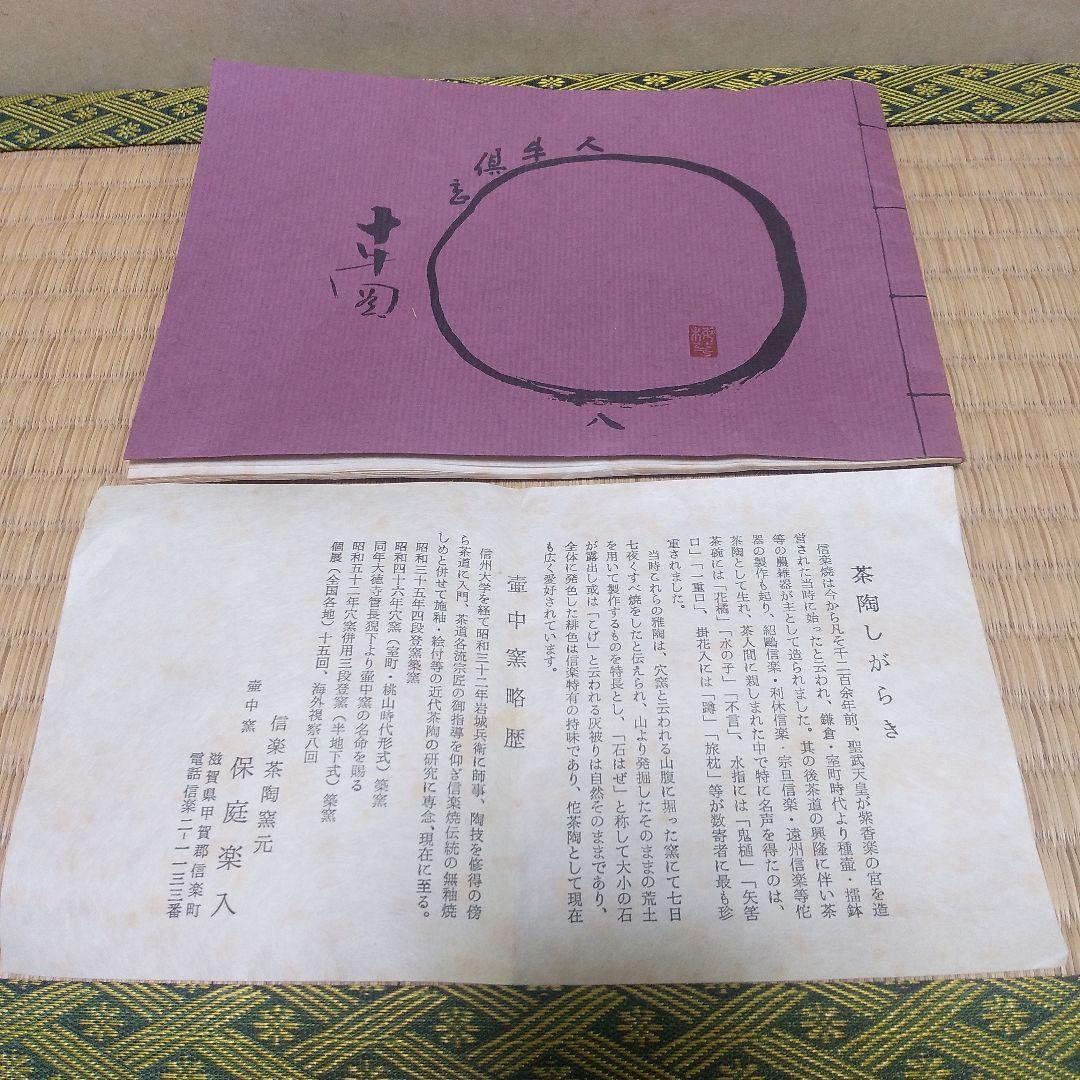 人牛倶忘
八
十牛図
茶陶しがらき
信楽焼は今から凡そ千二百余年前、聖武天皇が紫香楽の宮を造
営された当時に始ったと云われ、鎌倉・室町時代より種壷・擂鉢
等の農雑器が主として造られました。其の後茶道の興隆に伴い茶
器の製作も起り、紹鷗信楽・利休信楽・宗旦信楽・遠州信楽等佗
茶陶として生れ、茶人間に親しまれた中で特に名声を得たのは、
茶碗には「花橘」「水の子」「不言」、水指には「鬼樋」「矢筈
口」「一重口」、掛花入には「蹲」「旅枕」等が数寄者に最も珍
重されました。
当時これらの雅陶は、穴窯と云われる山腹に掘った窯にて七日
七夜くすべ焼をしたと伝えられ、山より発掘したそのままの荒土
を用いて製作するものを特長とし、「石はぜ」と称して大小の石
が露出し或は「こげ」と云われる灰被りは自然そのままであり、
全体に発色した緋色は信楽特有の持味であり、佗茶陶として現在
も広く愛好されています。
壷中窯略歴
信州大学を経て昭和三十二年岩城兵衛に師事、陶技を修得の傍
ら茶道に入門、茶道各流宗匠の御指導を仰ぎ信楽焼伝統の無釉焼
しめと併せて施釉・絵付等の近代茶陶の研究に専念、現在に至る。
昭和三十五年四段登窯築窯
昭和四十六年穴窯(室町・桃山時代形式)築窯
同年大徳寺管長猊下より壷中窯の名命を賜る
昭和五十二年穴窯併用三段登窯(半地下式)築窯
個展(全国各地)十五回、海外視察八回
信楽茶陶窯元
壷中窯 保庭楽入
滋賀県甲賀郡信楽町
電話信楽二―一一三三番